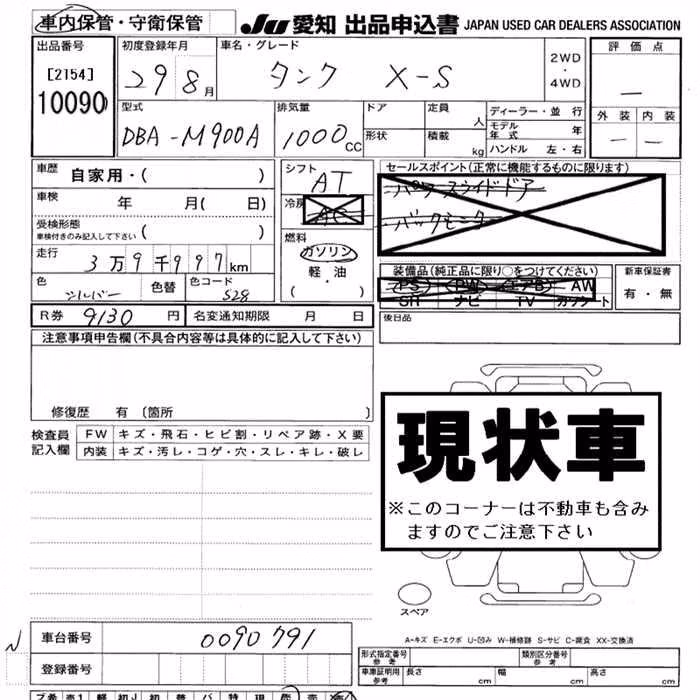 車内保管・守衛保管
JU 愛知 出品申込書 JAPAN USED CAR DEALERS ASSOCIATION
出品番号
[2154]
10090
初度登録年月
29 8月
車名・グレード
タンク X-S
2WD
・
4WD
評価点
外装 内装
型式
DBA-M900A
排気量
1000CC
ドア
形状
定員 人
積載 kg
ディーラー・並 行
モデル年式 年
ハンドル 左・右
車歴
自家用・( )
車検
年 月( 日)
受検形態
車検付きのみ記入して下さい ( )
走行
3万9千997km
色
シルバー
色替
色コード
S28
シフト
AT
冷房
AC
燃料
ガソリン
軽・油
・
( )
セールスポイント(正常に機能するものに限ります)
・パワースライドドア
・バックモニター
装備品(純正品に限り○をつけてください)
PS PW エアB AW
SR ナビ TV カセット
新車保証書
有・無
R券 9130 円
名変通知期限 月 日
後日品
注意事項申告欄(不具合内容等は具体的に記入して下さい)
修復歴 有 [箇所 ]
検査員
記入欄
FW キズ・飛石・ヒビ割・リペア跡・X要
内装 キズ・汚レ・コゲ・穴・スレ・キレ・破レ
現状車
※このコーナーは不動車も含み
ますのでご注意下さい
スペア
A-キズ E-エクボ U-凹み W-補修跡 S-サビ C-腐食 XX-交換済
N
車台番号
0090791
登録番号
形式指定番号
参考
類別区分番号
参考
車庫証明用
参考
長さ cm
幅 cm
高さ cm